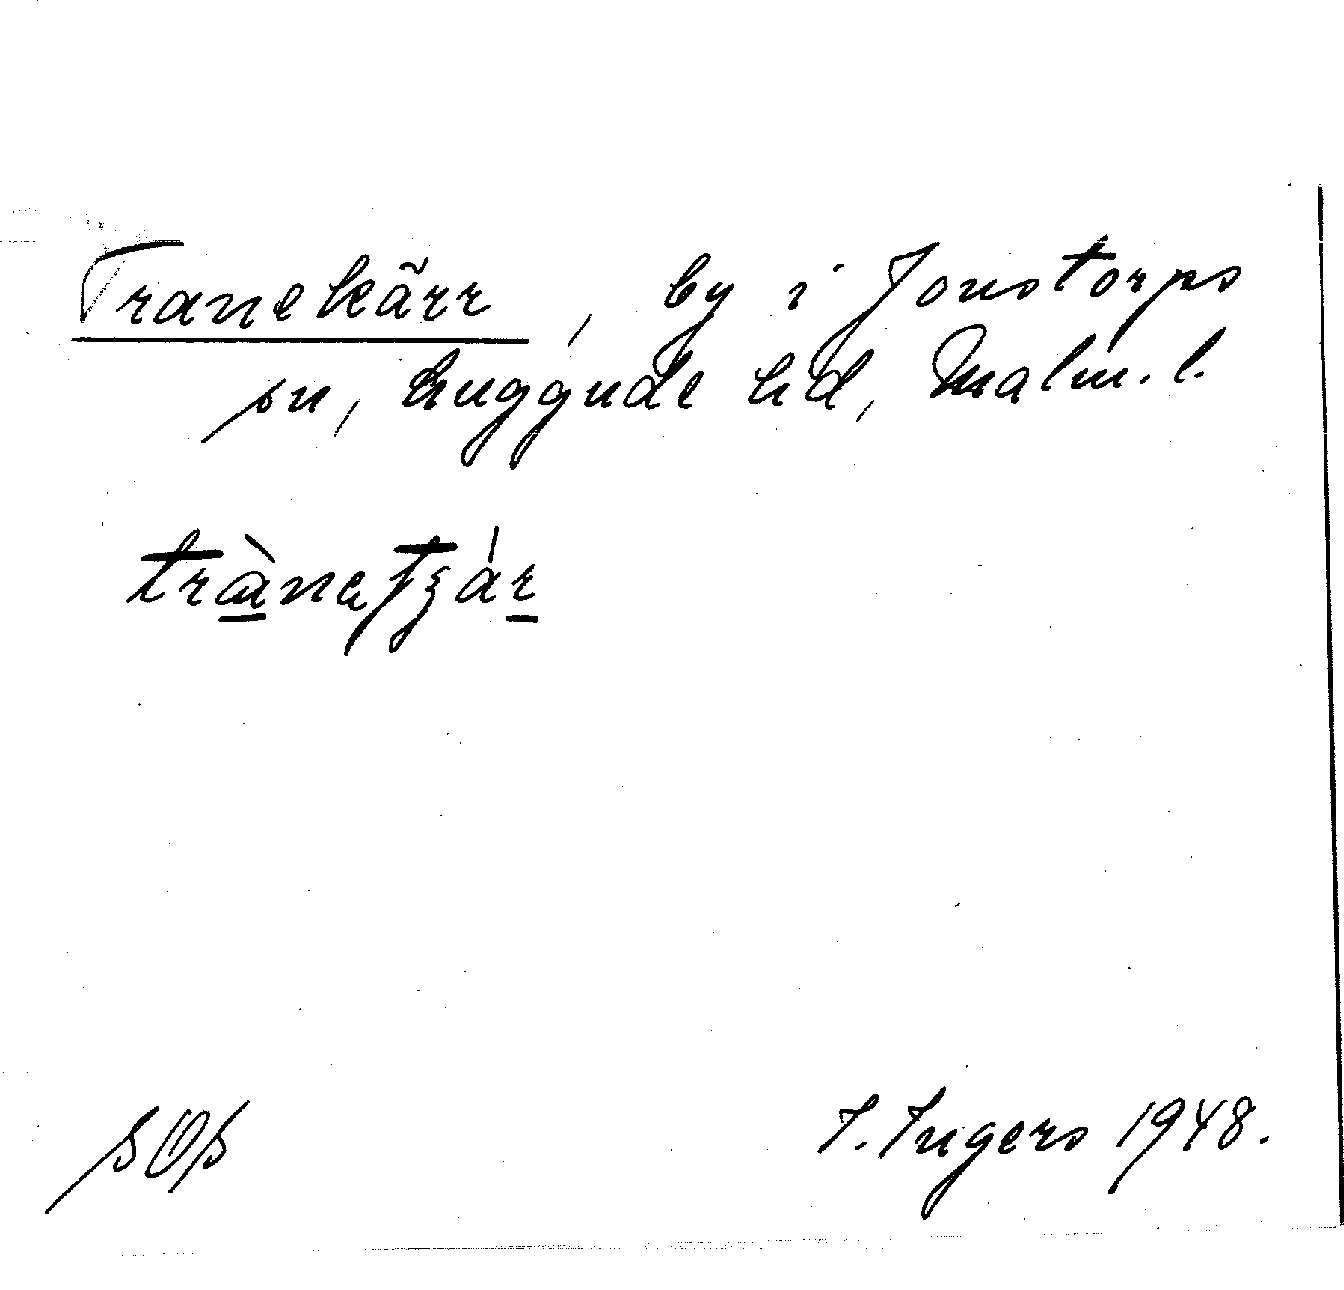 Tranekärr, by i Jonstorps
sn, Luggude hd, Malm. l.
I. Ingers 1948.